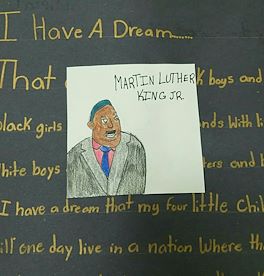 I Have A Dream......
That
MARTIN LUTHER
KING JR.
k boys and
black girls
nds with li
White boys
ers and b
I have a dream that my four little Chil
ill one day live in a nation Where th